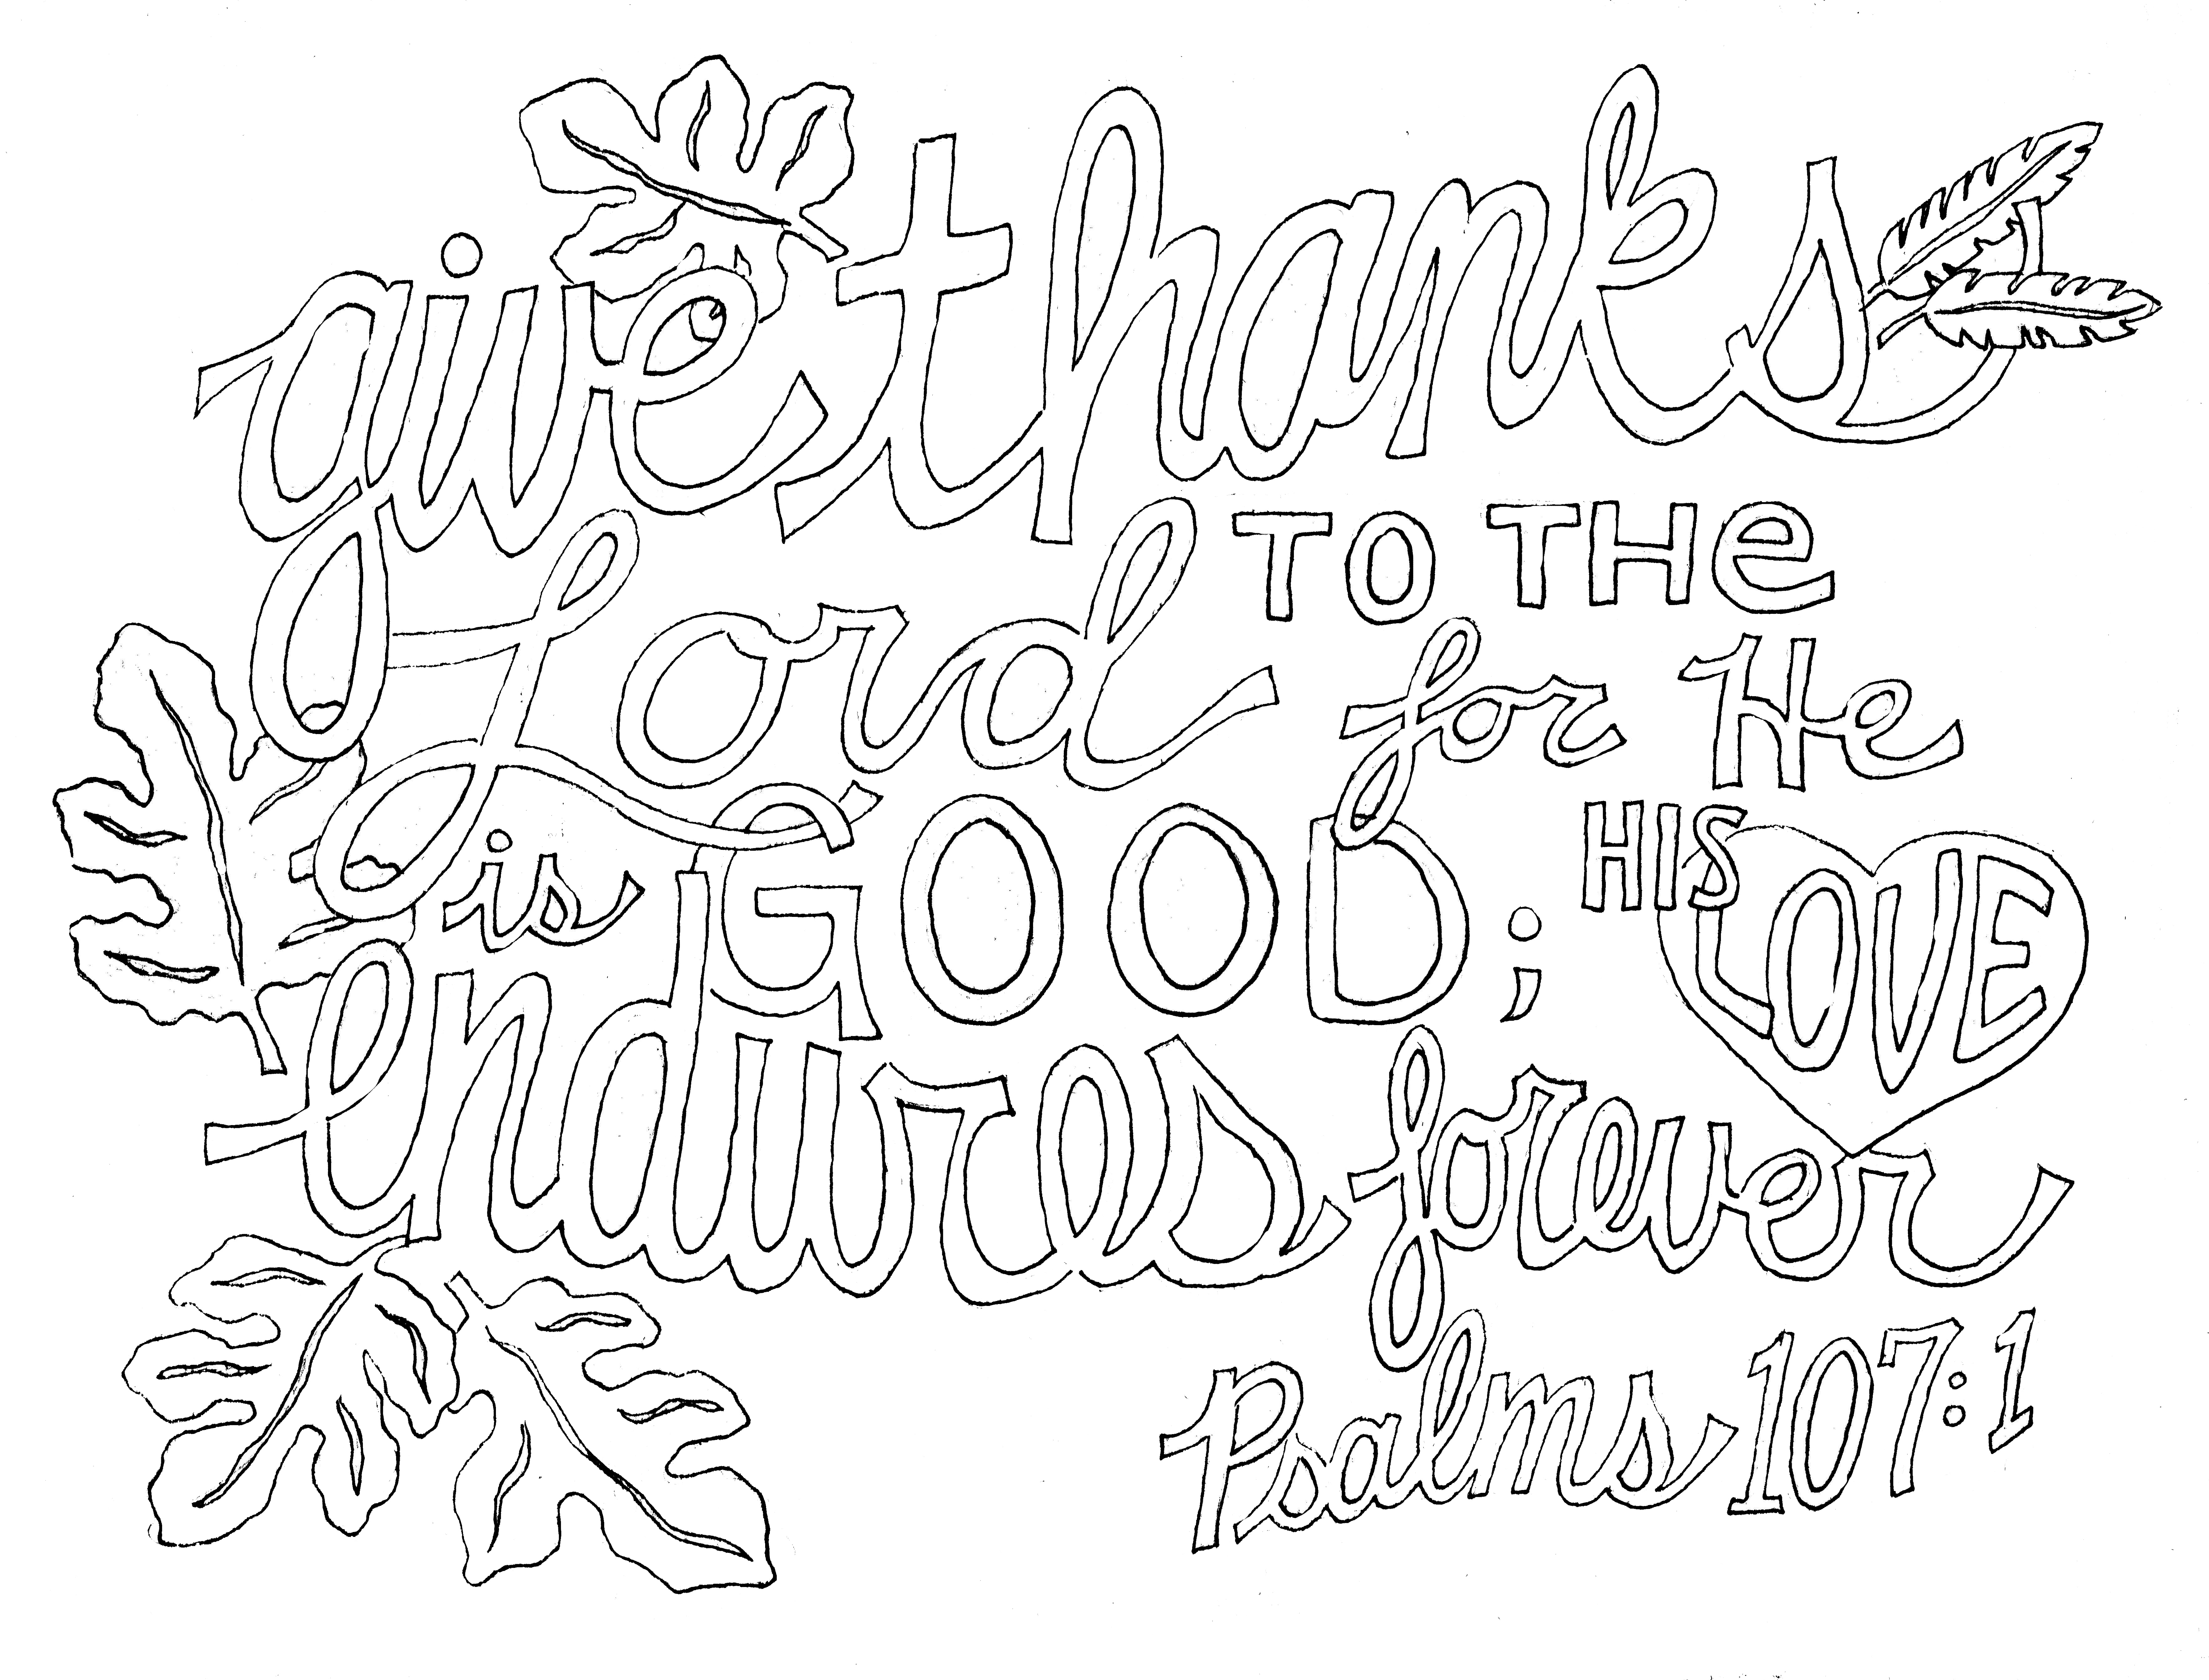 give thanks
TO THe
Lord for He
is GOOD; HIS LOVE
Endures forever
Psalms 107:1